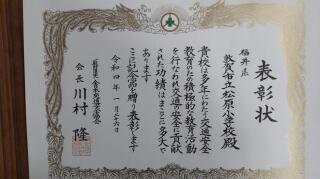 表彰状
福井県
敦賀市立松原小学校殿
貴校は多年にわたり交通安全
教育のため積極的な教育活動
を行なわれ交通の安全に貢献
された功績はまことに多大で
あります
ここに記念品を贈り表彰します
令和四年一月二六日
一般財団法人全日本交通安全協会
会長 川村 隆